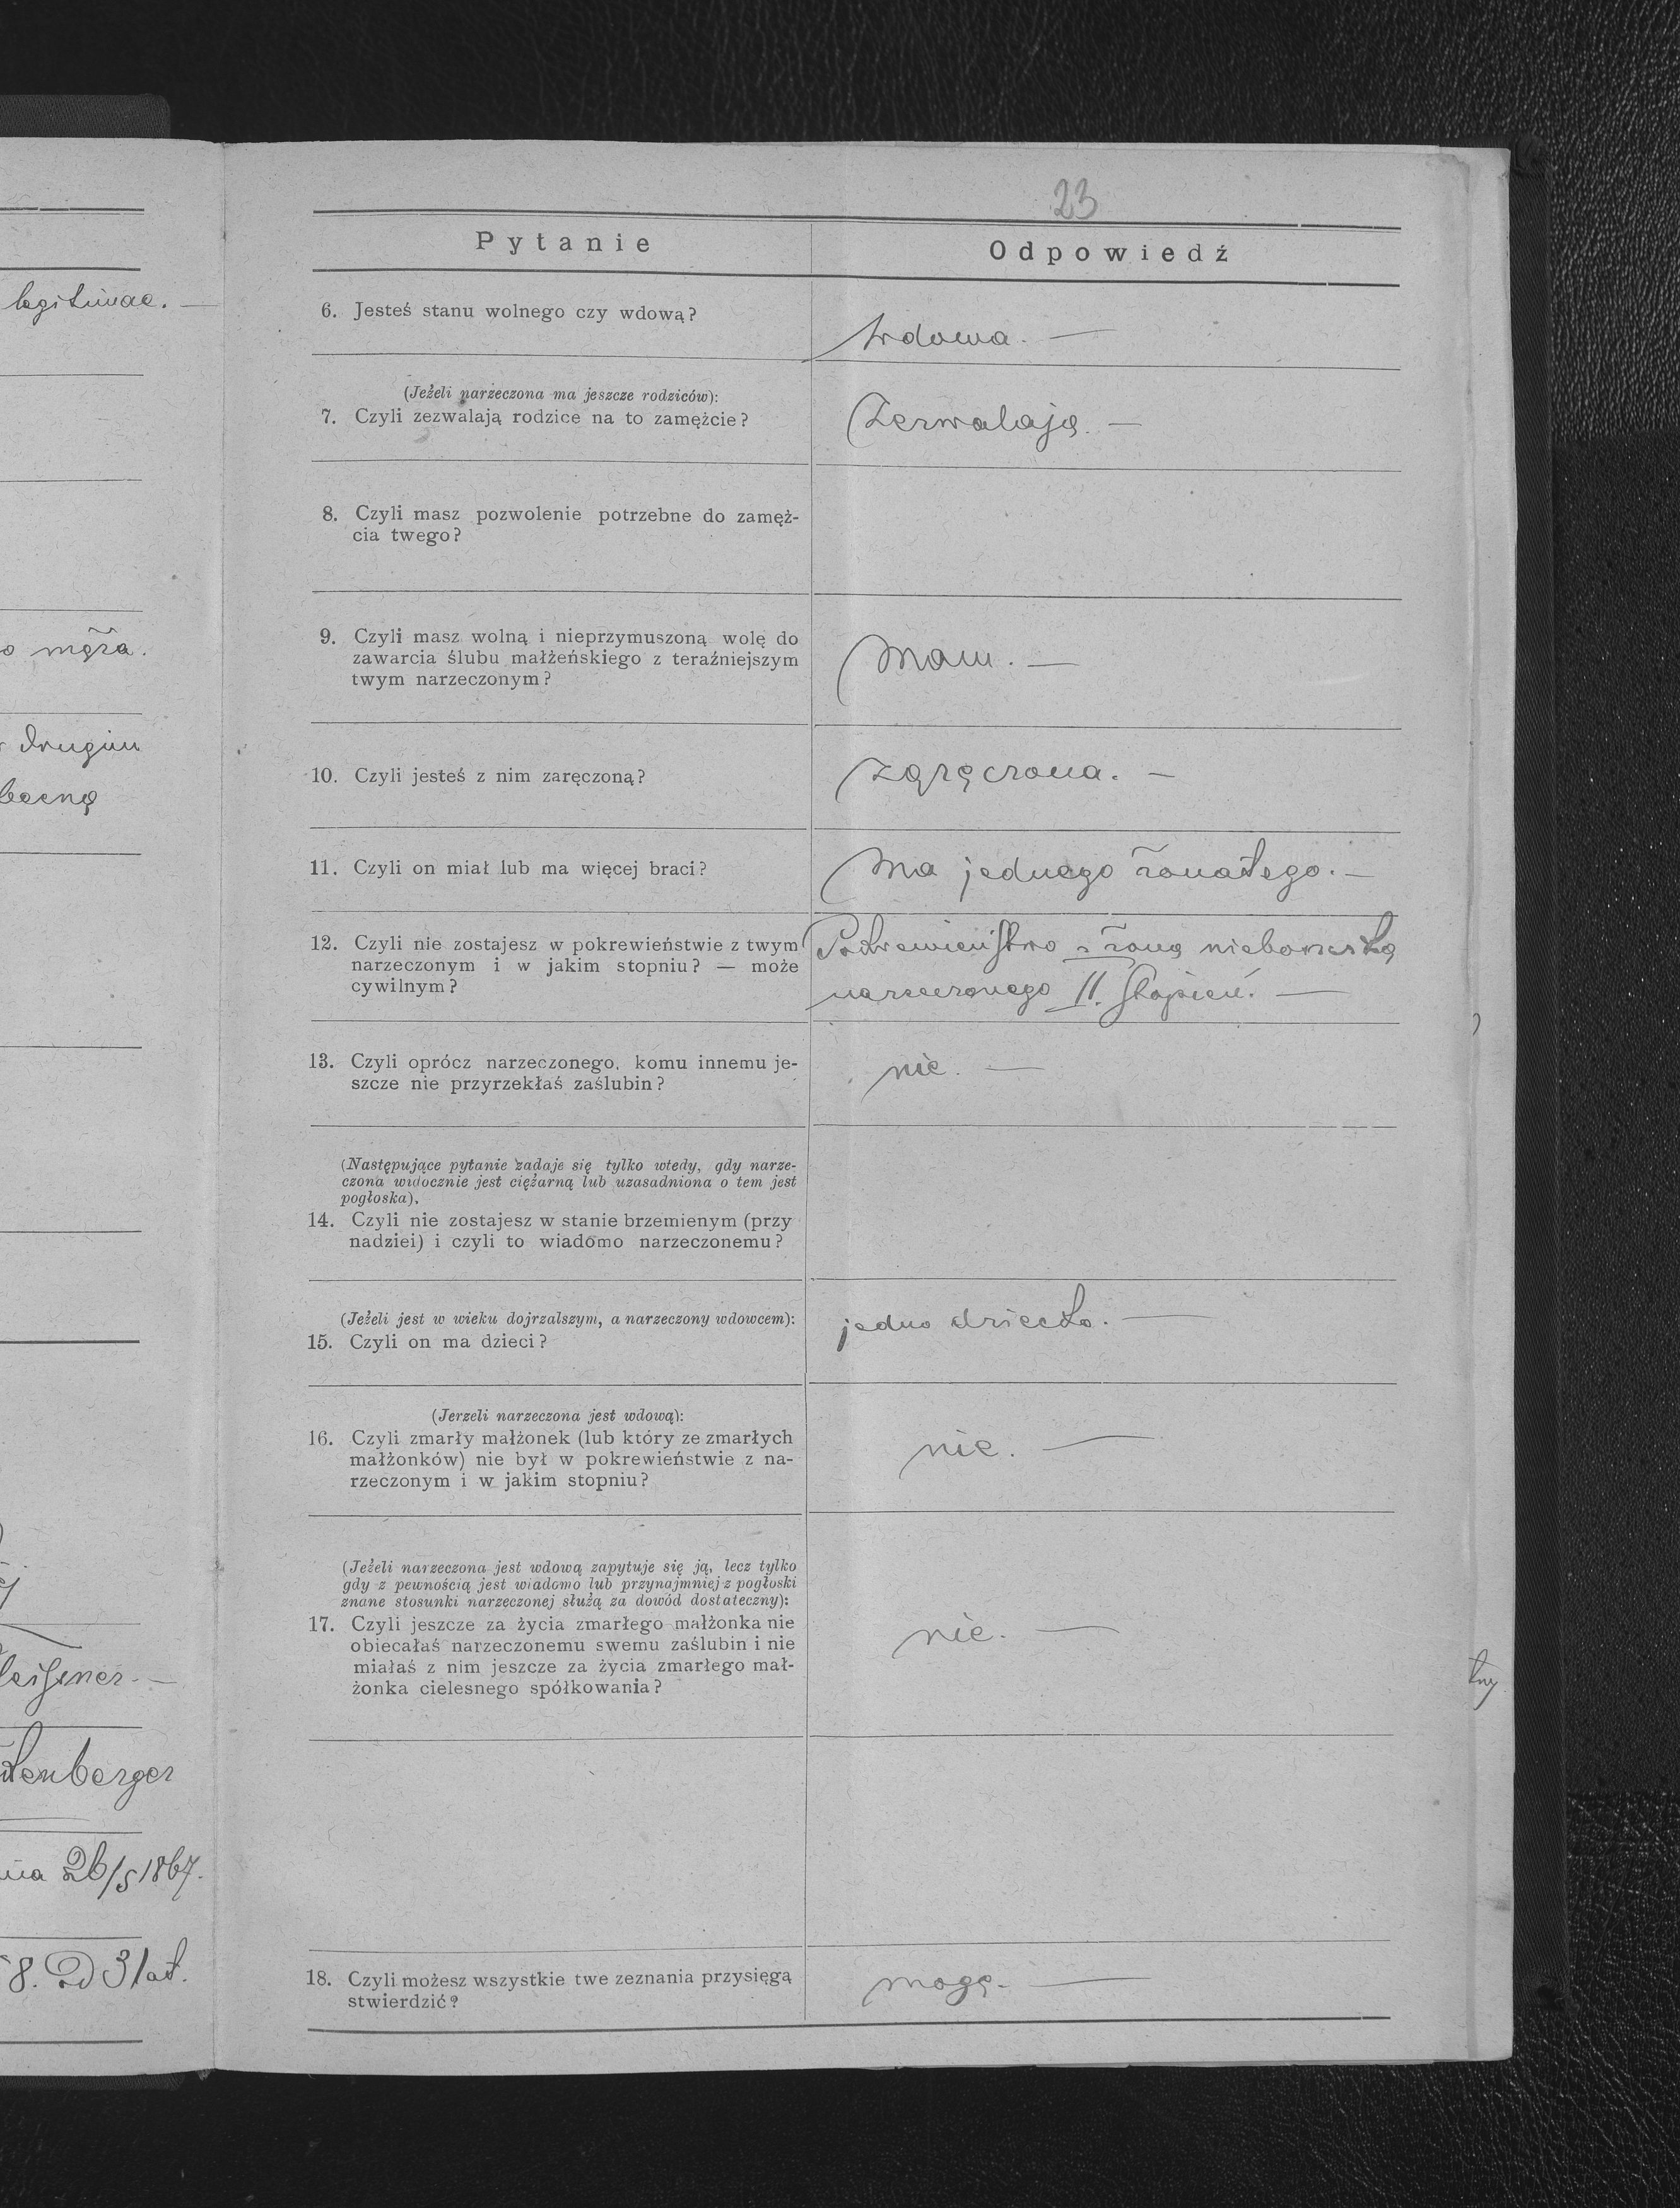 legitimae. —
o męża.
drugim
becną
leißner. —
tenberger
26/5 1867.
8. 31 lat.
23
Pytanie
Odpowiedź
6. Jesteś stanu wolnego czy wdową?
Wdowa. —
(Jeżeli narzeczona ma jeszcze rodziców):
7. Czyli zezwalają rodzice na to zamężcie?
Zezwalają. —
8. Czyli masz pozwolenie potrzebne do zamęż-
cia twego?
9. Czyli masz wolną i nieprzymuszoną wolę do
zawarcia ślubu małżeńskiego z teraźniejszym
twym narzeczonym?
Mam. —
10. Czyli jesteś z nim zaręczoną?
Zaręczona. —
11. Czyli on miał lub ma więcej braci?
Ma jednego żonatego. —
12. Czyli nie zostajesz w pokrewieństwie z twym
narzeczonym i w jakim stopniu? — może
cywilnym?
Pokrewieństwo z żoną nieboszczką
narzeczonego II. stopień. —
13. Czyli oprócz narzeczonego, komu innemu je-
szcze nie przyrzekłaś zaślubin?
nie. —
(Następujące pytanie zadaje się tylko wtedy, gdy narze-
czona widocznie jest ciężarną lub uzasadniona o tem jest
pogłoska).
14. Czyli nie zostajesz w stanie brzemienym (przy
nadziei) i czyli to wiadomo narzeczonemu?
(Jeżeli jest w wieku dojrzalszym, a narzeczony wdowcem):
15. Czyli on ma dzieci?
jedno dziecko. —
(Jerzeli narzeczona jest wdową):
16. Czyli zmarły małżonek (lub który ze zmarłych
małżonków) nie był w pokrewieństwie z na-
rzeczonym i w jakim stopniu?
nie. —
(Jeżeli narzeczona jest wdową zapytuje się ją, lecz tylko
gdy z pewnością jest wiadomo lub przynajmniej z pogłoski
znane stosunki narzeczonej służą za dowód dostateczny):
17. Czyli jeszcze za życia zmarłego małżonka nie
obiecałaś narzeczonemu swemu zaślubin i nie
miałaś z nim jeszcze za życia zmarłego mał-
żonka cielesnego spółkowania?
nie. —
18. Czyli możesz wszystkie twe zeznania przysięgą
stwierdzić?
mogę. —